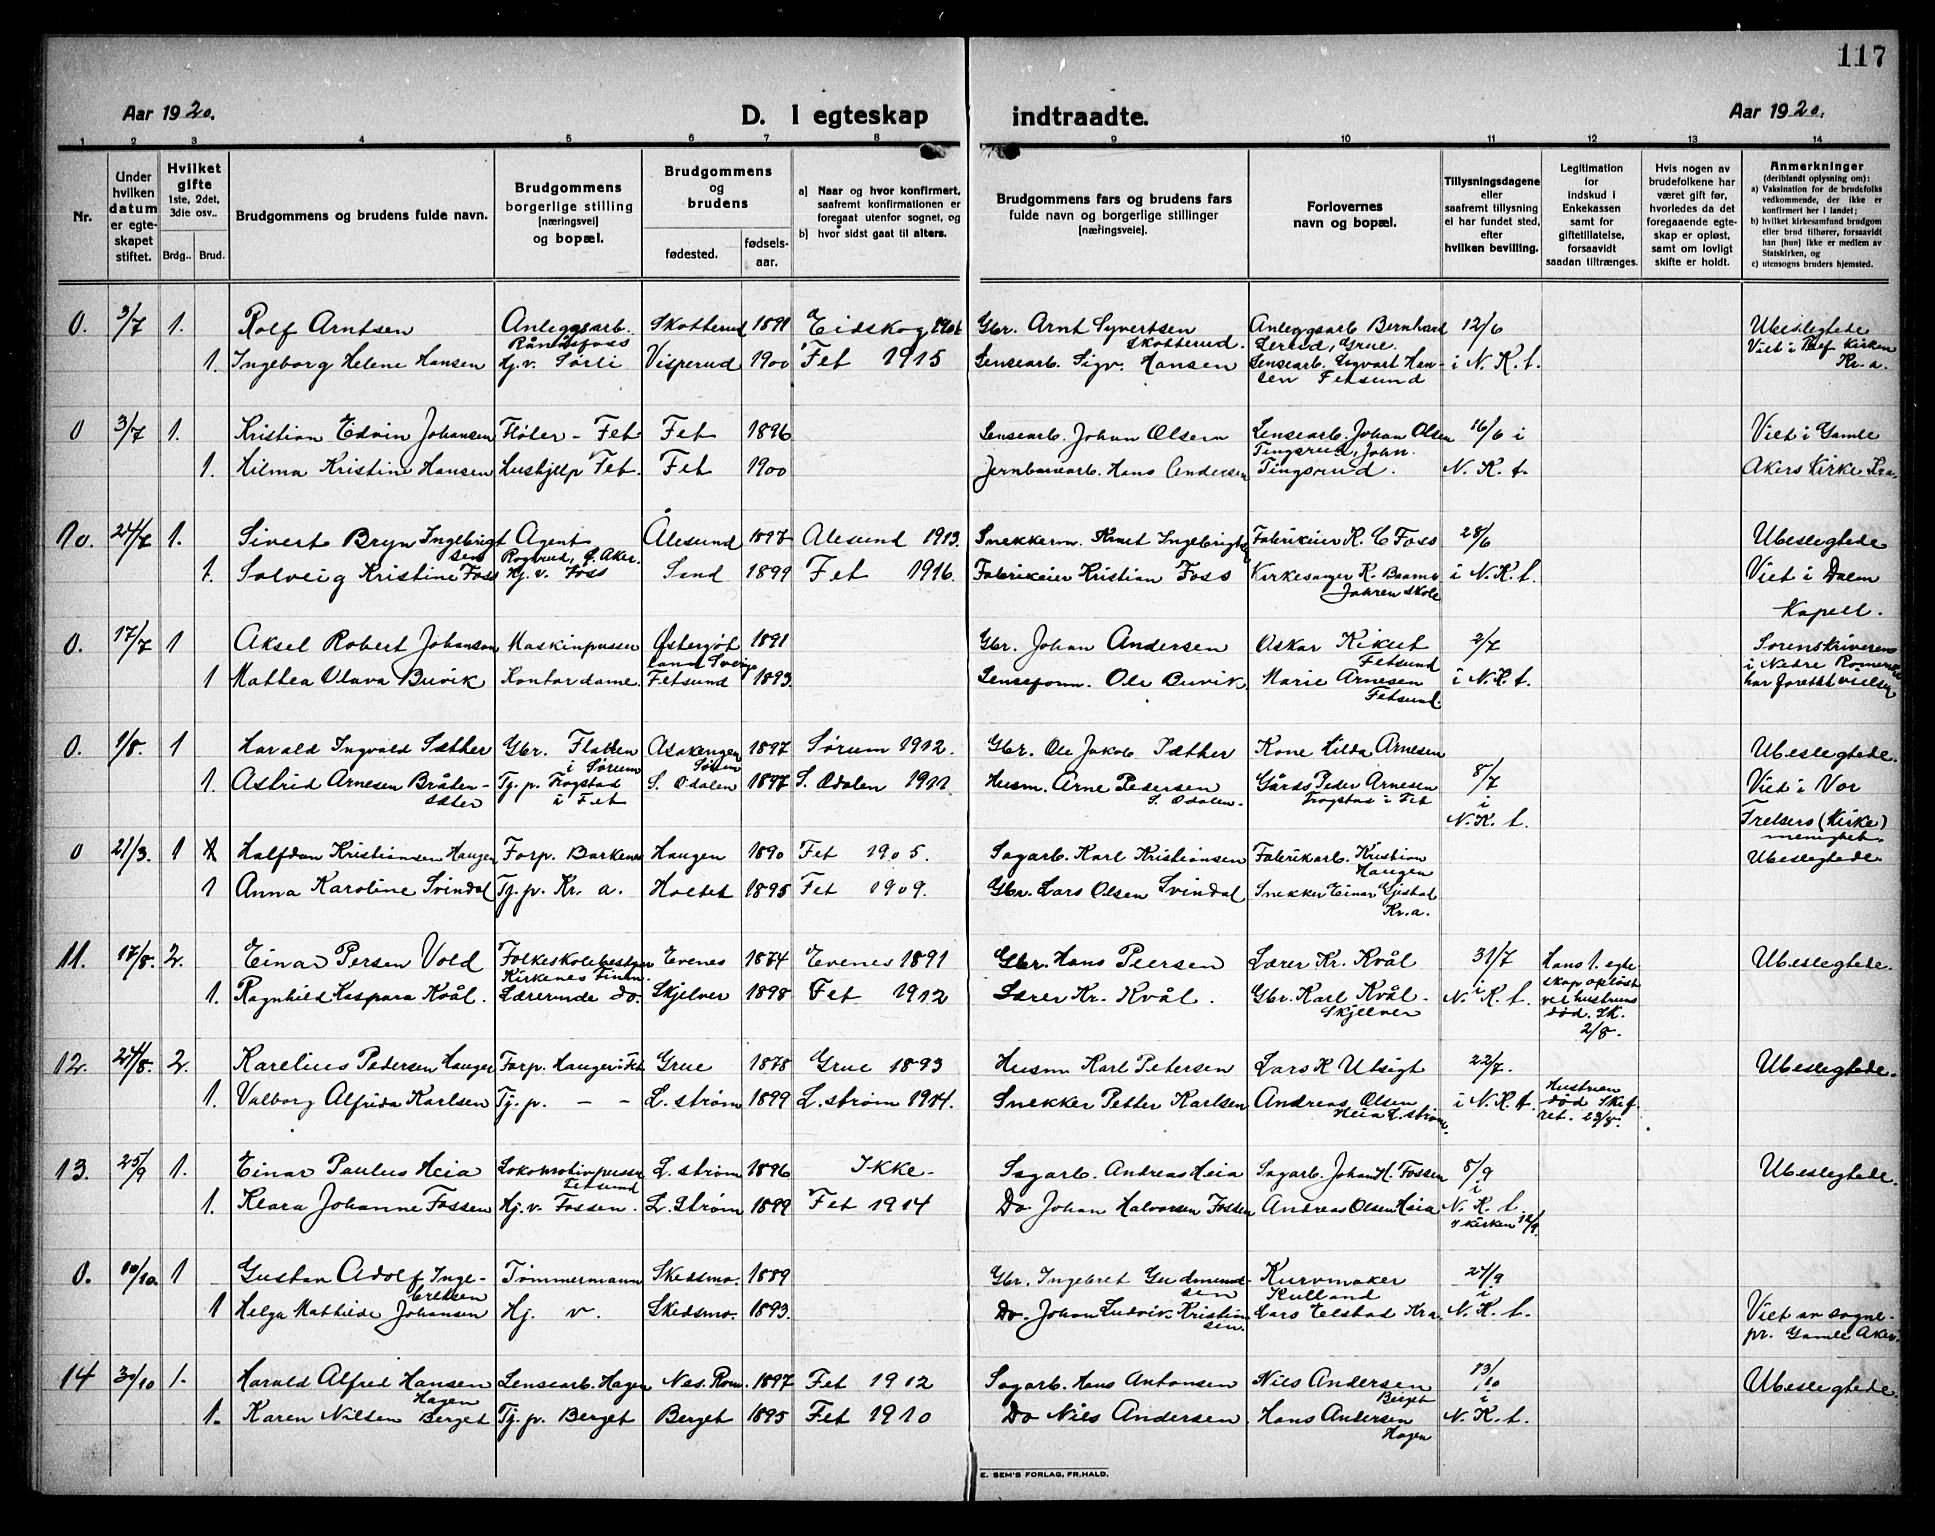 117
Aar 1920. D. I egteskap indtraadte. Aar 1920.
1 2 3 4 5 6 7 8 9 10 11 12 13 14
Nr.
Under hvilken datum er egteskapet stiftet.
Hvilket gifte 1ste, 2det, 3die osv..
Brdg.. Brud.
Brudgommens og brudens fulde navn.
Brudgommens borgerlige stilling [næringsvei] og bopæl.
Brudgommens og brudens
fødested. fødselsaar.
a) Naar og hvor konfirmert, saafremt konfirmationen er foregaat utenfor sognet, og
b) hvor sidst gaat til alters.
Brudgommens fars og brudens fars fulde navn og borgerlige stillinger [næringsveie].
Forlovernes navn og bopæl.
Tillysningsdagene eller saafremt tillysning ei har fundet sted, efter hvilken bevilling.
Legitimation for indskud i Enkekassen samt for giftetillatelse, forsaavidt saadan tiltrænges.
Hvis nogen av brudefolkene har været gift før, hvorledes da det foregaaende egteskap er opløst, samt om lovligt skifte er holdt.
Anmerkninger (deriblandt oplysning om):
a) Vaksination for de brudefolks vedkommende, der ikke er konfirmert her i landet;
b) hvilket kirkesamfund brudgom eller brud tilhører, forsaavidt han [hun] ikke er medlem av Statskirken, og
c) utensogns bruders hjemsted.
0. 3/7 1. Rolf Arntsen Anleggsarb. Rånåsfoss Skotterud 1891 Eidskog 1906 Gbr. Arnt Syvertsen Skotterud. Anleggsarb Bernhard Lerud, Grue. 12/6 Ubeslegtede
1. Ingeborg Helene Hansen Hj. v. Sørli Visperud 1900 Fet 1915 Lensearb. Sigv. Hansen Lensearb. Sigvart Hansen Fetsund i N. K. t. Viet i Kirken Kr. a.
0 3/7 1. Kristian Edvin Johansen Fløter - Fet Fet 1896 Lensearb. Johan Olsen Lensearb. Johan Olsen Tingsrud, John 16/6 i Viet i Gamle
1. Hilma Kristine Hansen Hushjelp Fet. Fet 1900 Jernbanearb. Hans Andersen Tingsrud. N. K. t. Akers Kirke Kra.
10. 24/7 1. Sivert Bryn Ingebrigtsen Agent Rognerud, Ø. Aker. Ålesund 1897 Alesund 1913. Snekkerm. Knut Ingebrigts Fabrikeier K. C Foss 28/6 Ubeslegtede
1. Solveig Kristine Foss Hj. v. Foss Sand 1899 Fet 1916. Fabrikeier Kristian Foss Kirkesanger K. Jahren Skole i N. K. t. Viet i Dalen Kapell.
0. 17/7 1 Aksel Robert Johanson Maskinpusser Østergøtland Sverige 1891 Gbr. Johan Andersen Oskar Kikut Fetsund 2/7 Sorenskriveren
1 Mathea Olava Buvik Kontordame. Fetsund 1893. Lenseform. Ole Buvik Marie Arnesen Fetsund. i N. K. t. i Nedre Romerike har foretat vielsen
0. 1/8. 1 Harald Ingvald Sæther Gbr. Flatten i Sørum Asakengen Sørum 1897 Sørum 1912. Gbr. Ole Jakob Sæther Kone Hilda Arnesen 8/7 i N. K. t. Ubeslegtede.
1. Astrid Arnesen Bråtensæter Tj. p. Frogstad i Fet S. Odalen 1897 S. Odalen 1911 Husm. Arne Pedersen S. Odalen. Gårds. Peder Arnesen Frogstad i Fet Viet i Vor Frelsers (Kirke) menighet
0 21/3. 1 Halfdan Kristiansen Haugen Forp. Barkenes Haugen 1890 Fet 1905. Sagarb. Karl Kristiansen Fabrikarb. Kristian Haugen Ubeslegtede
1 Anna Karoline Svindal Tj. p. Kr. a. Holtet 1895 Fet 1909. Gbr. Lars Olsen Svindal Snekker Einar Gjestad Kr. a.
11. 17/8. 2. Einar Persen Vold Folkeskolebestyrer Kirkenes Finm. Evenes 1874 Evenes 1891 Gbr. Hans Peersen Lærer Kr. Kvål 31/7 Hans 1. egteskap opløst ved hustruens død. Sk. 2/8. Ubeslegtede.
1. Ragnhild Kaspara Kvål. Lærerinde do. Skjelver 1898 Fet 1912 Lærer Kr. Kvål. Gbr. Karl Kvål. Skjelver i N. K. t.
12. 24/8. 2. Karelius Pedersen Hauger Forp. Hauger i Fet Grue 1878 Grue 1893 Husm Karl Petersen Lars K Utsigt 22/7. Hustruen død Skifteret. 23/8. Ubeslegtede.
1. Valborg Alfrida Karlsen Tj. p. - - L. strøm 1899 L. strøm 1914. Snekker Petter Karlsen Andreas Olsen Heia L. strøm. i N. K. t.
13. 25/9 1. Einar Paulus Heia Lokomotivpusser Fetsund L. strøm 1896 Ikke - Sagarb. Andreas Heia Sagarb. Johan H. Fossen 5/9 Ubeslegtede.
1. Klara Johanne Fossen Hj. v. Fossen. L. Strøm 1899 Fet 1914 Do Johan Halvorsen Fossen Andreas Olsen Heia i N. K. t. i kirken 12/9.
0. 10/10. 1 Gustav Adolf Ingebretsen Tømmermann Skedsmo. 1889 Gbr. Ingebret Gudmundsen Kurvmaker Kulland 24/9
1 Helga Mathilde Johansen Hj. v. Skedsmo. 1893. Do. Johan Ludvik Kristiansen. Lars Elstad Kra. i N. K. t. Viet av sognepr. Gamle Aker.
14 30/10 1. Harald Alfred Hansen Hagen Lensearb. Hagen Nes. Rom. 1897 Fet 1912 Sagarb. Hans Antonsen Nils Andersen Berget 13/10 Ubeslegtede.
1. Karen Nilsen Berget Tj. p. Berget Berget 1895 Fet 1910 Do Nils Andersen Hans Andersen Hagen i N. K. t.
E. SEM'S FORLAG, FR.HALD.